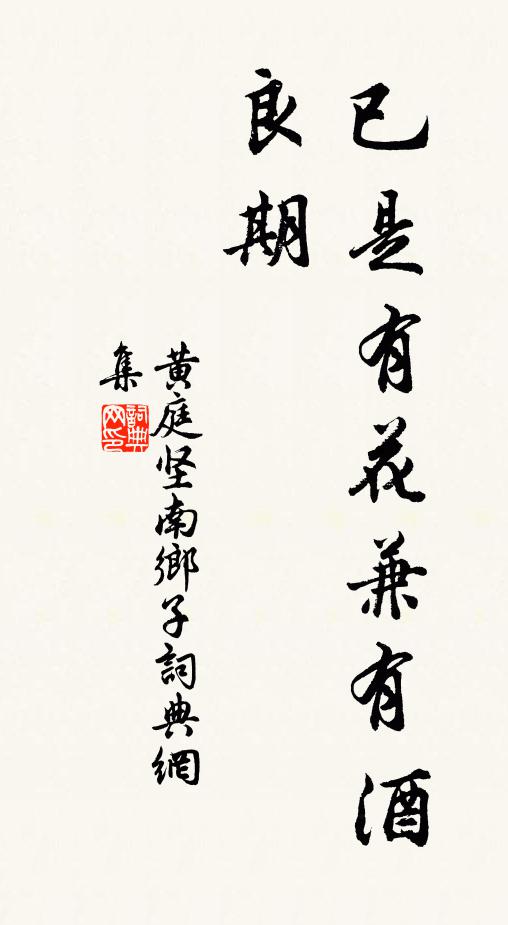 已是有花兼有酒
良期
黄庭坚南鄉子詞典網
集
詞典
网印